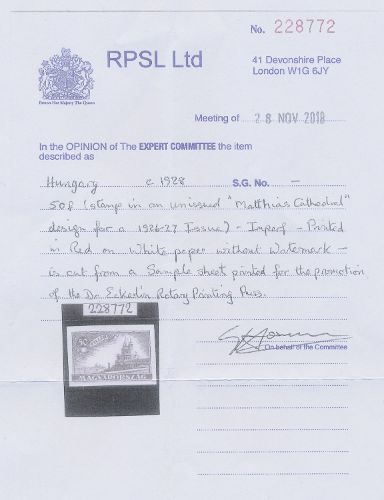 No. 228772
RPSL Ltd
41 Devonshire Place
London W1G 6JY
Patron Her Majesty The Queen
Meeting of 28 NOV 2018
In the OPINION of The EXPERT COMMITTEE the item
described as
Hungary c 1928 S.G. No. —
50f (stamp in an unissued "Matthias Cathedral"
design for a 1926-27 Issue) - Imperf - Printed
in Red on White paper without Watermark -
is cut from a Sample sheet printed for the promotion
of the Dr. Eckerlin Rotary Printing Press.
On behalf of the Committee
228772
50
MAGYARORSZÁG